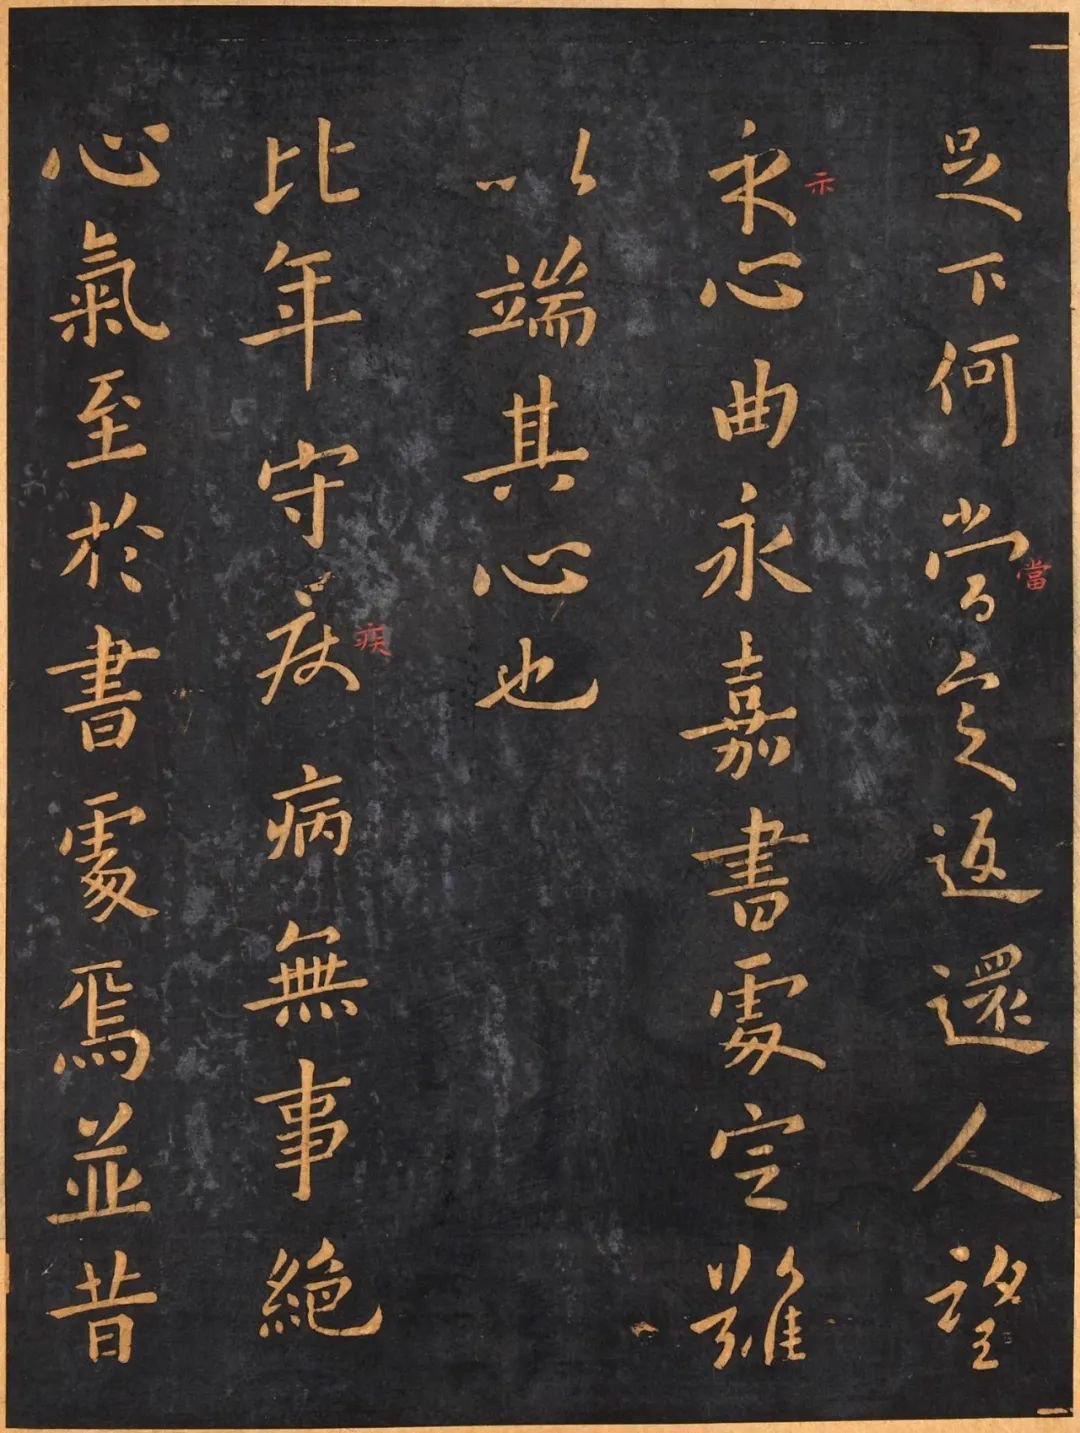 足下何當定返還人望
當
示心曲永嘉書處定難
示
以端其心也
比年守疾病無事絕
疾
心氣至於書處焉並昔